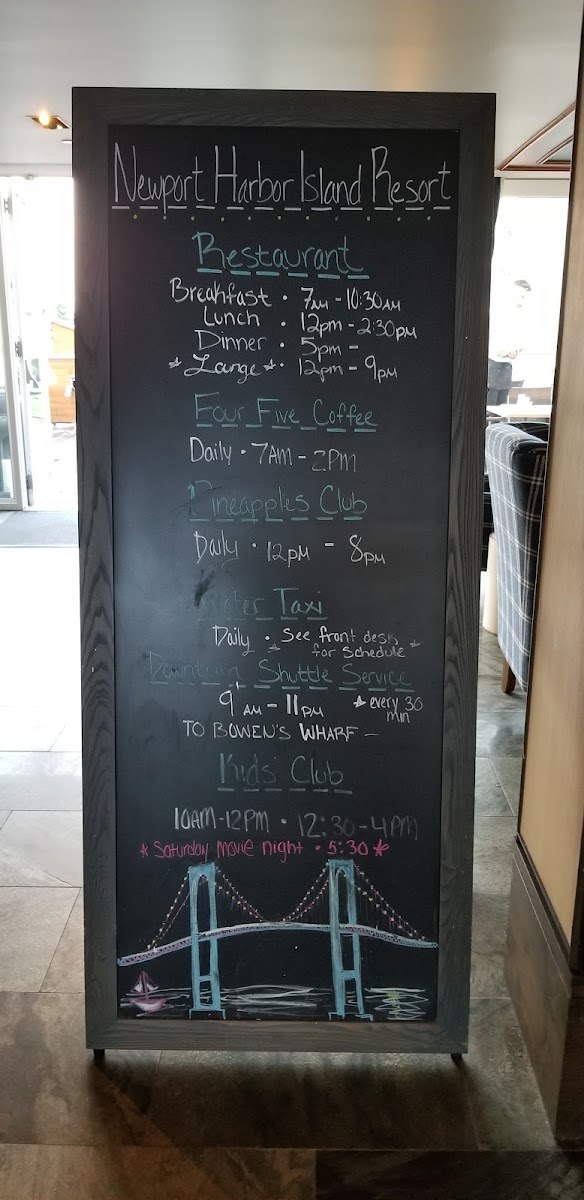 Newport Harbor Island Resort
Restaurant
Breakfast · 7AM - 10:30AM
Lunch · 12pm - 2:30pm
Dinner · 5pm -
* Lounge * · 12pm - 9pm
Four Five Coffee
Daily · 7AM - 2PM
Pineapples Club
Daily · 12pm - 8pm
Water Taxi
Daily · * See front desk *
for Schedule
Downtown Shuttle Service
9 AM - 11 PM * every 30
min
TO BOWEN'S WHARF -
Kids' Club
10AM-12PM · 12:30-4PM
* Saturday Movie Night · 5:30 *